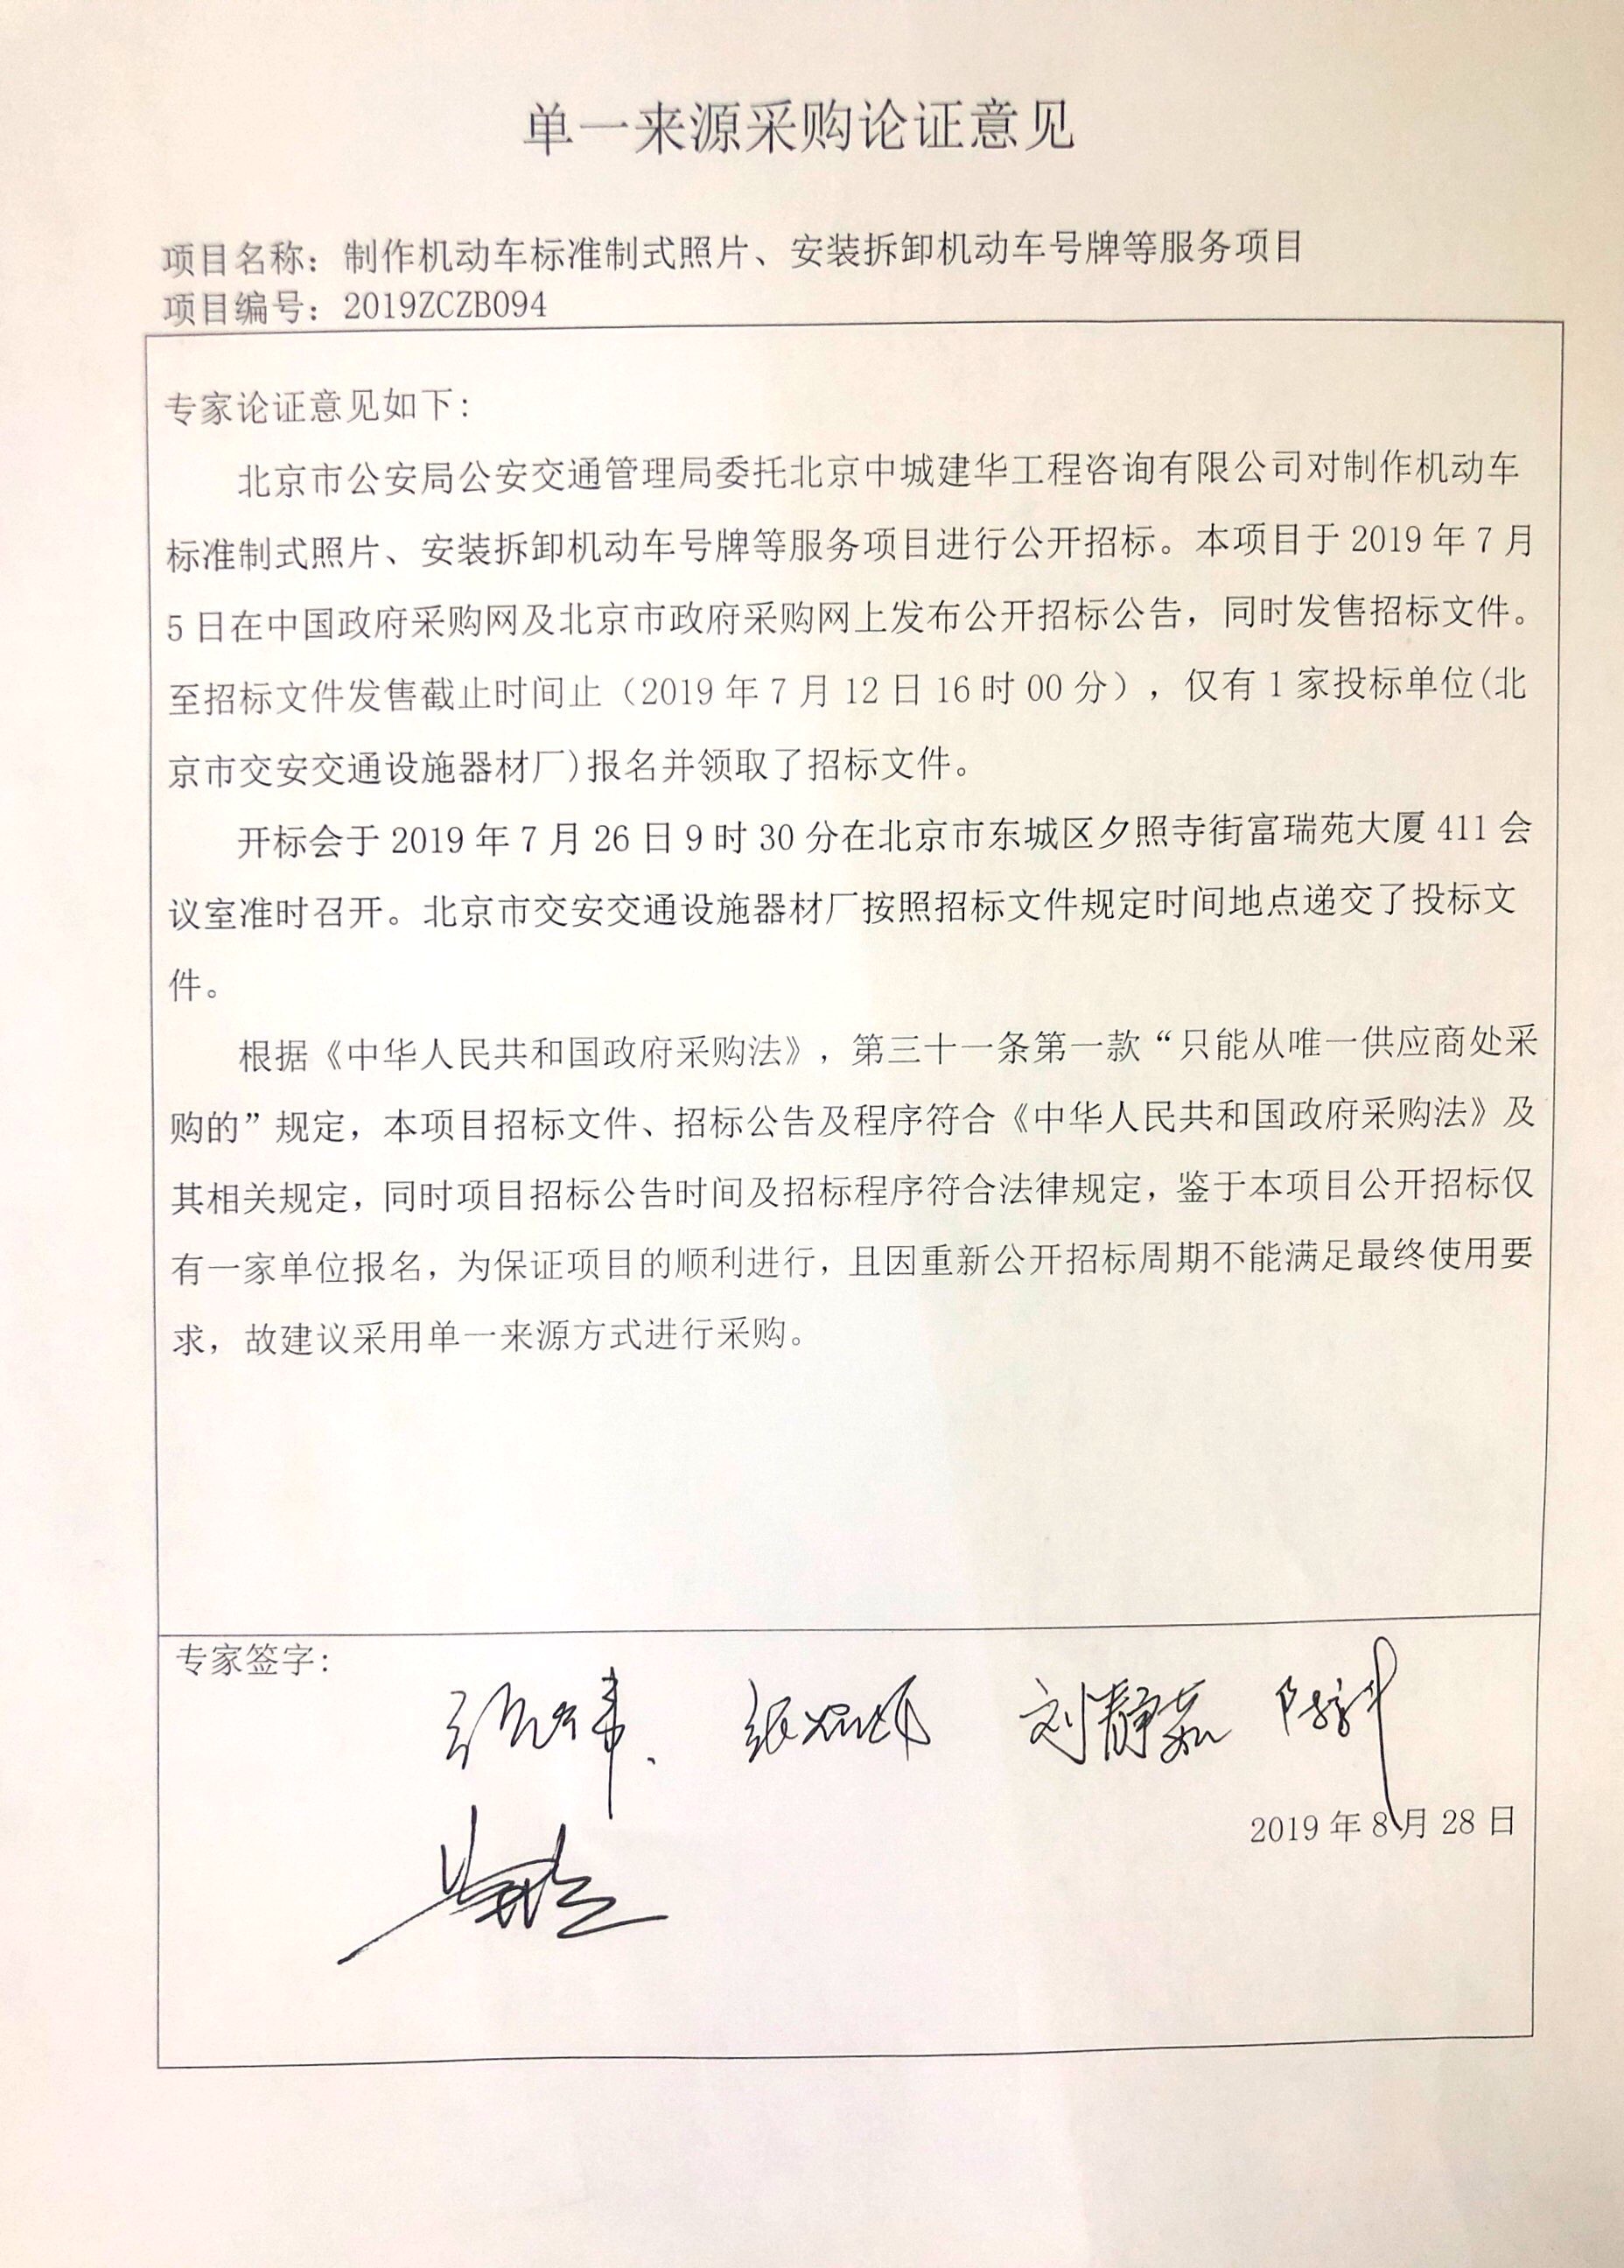 单一来源采购论证意见
项目名称：制作机动车标准制式照片、安装拆卸机动车号牌等服务项目
项目编号：2019ZCZB094
专家论证意见如下：
北京市公安局公安交通管理局委托北京中城建华工程咨询有限公司对制作机动车
标准制式照片、安装拆卸机动车号牌等服务项目进行公开招标。本项目于 2019 年 7 月
5 日在中国政府采购网及北京市政府采购网上发布公开招标公告，同时发售招标文件。
至招标文件发售截止时间止（2019 年 7 月 12 日 16 时 00 分），仅有 1 家投标单位(北
京市交安交通设施器材厂)报名并领取了招标文件。
开标会于 2019 年 7 月 26 日 9 时 30 分在北京市东城区夕照寺街富瑞苑大厦 411 会
议室准时召开。北京市交安交通设施器材厂按照招标文件规定时间地点递交了投标文
件。
根据《中华人民共和国政府采购法》，第三十一条第一款“只能从唯一供应商处采
购的”规定，本项目招标文件、招标公告及程序符合《中华人民共和国政府采购法》及
其相关规定，同时项目招标公告时间及招标程序符合法律规定，鉴于本项目公开招标仅
有一家单位报名，为保证项目的顺利进行，且因重新公开招标周期不能满足最终使用要
求，故建议采用单一来源方式进行采购。
专家签字：
刘静茹
2019 年 8 月 28 日